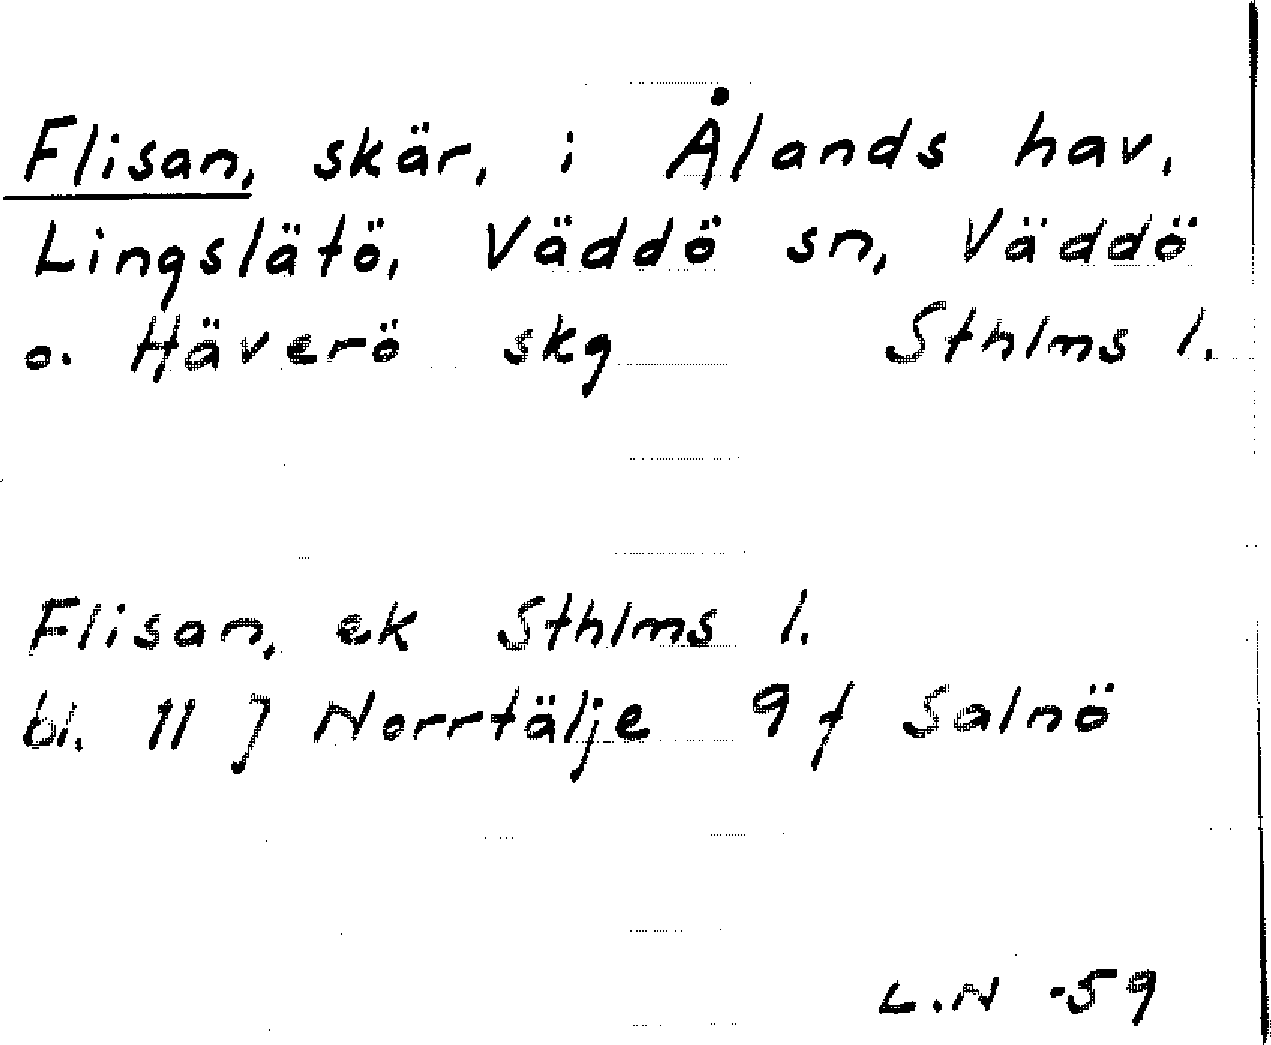 Flisan, skär, i Ålands hav,
Lingslätö, Väddö sn, Väddö
o. Häverö skg Sthlms l.
Flisan, ek Sthlms l.
bl. 11 J Norrtälje 9 f Salnö
L.N -59